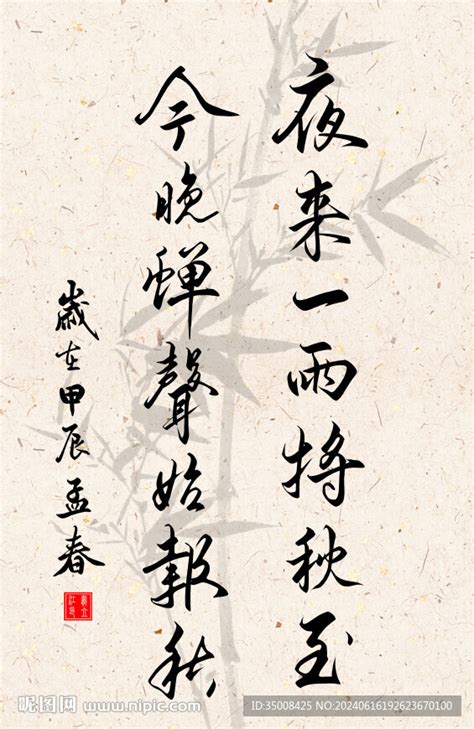 夜来一雨将秋至
今晚蝉聲始報秋
歳在甲辰孟春
昵图网 www.nipic.com
ID:35008425 NO:20240616192623670100